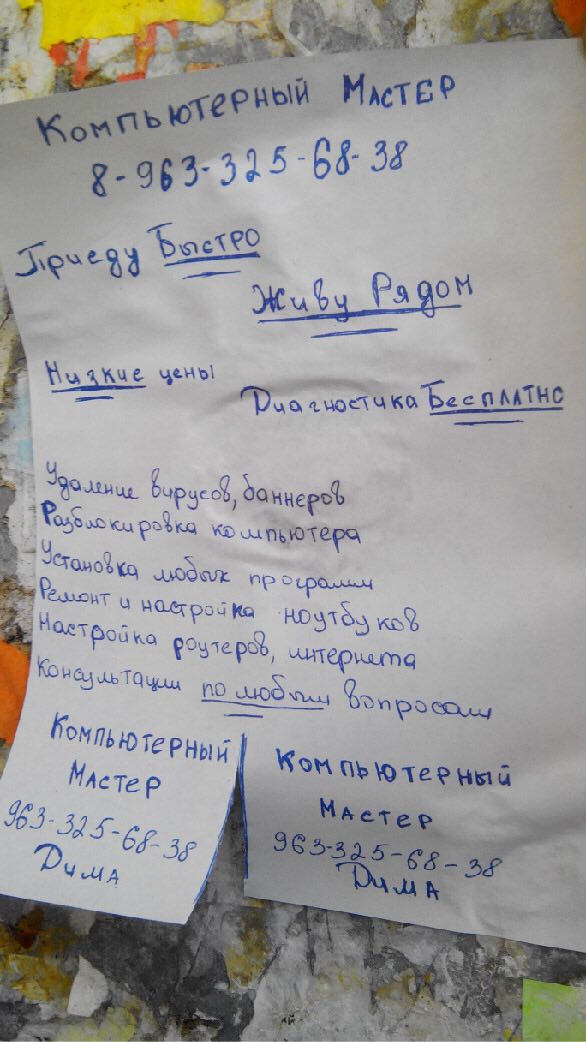 Компьютерный Мастер
8-963-325-68-38
Приеду Быстро
Живу Рядом
Низкие цены
Диагностика Бесплатно
Удаление вирусов, баннеров
Разблокировка компьютера
Установка любых программ
Ремонт и настройка ноутбуков
Настройка роутеров, интернета
Консультации по любым вопросам
Компьютерный
Мастер
963-325-68-38
Дима
Компьютерный
Мастер
963-325-68-38
Дима